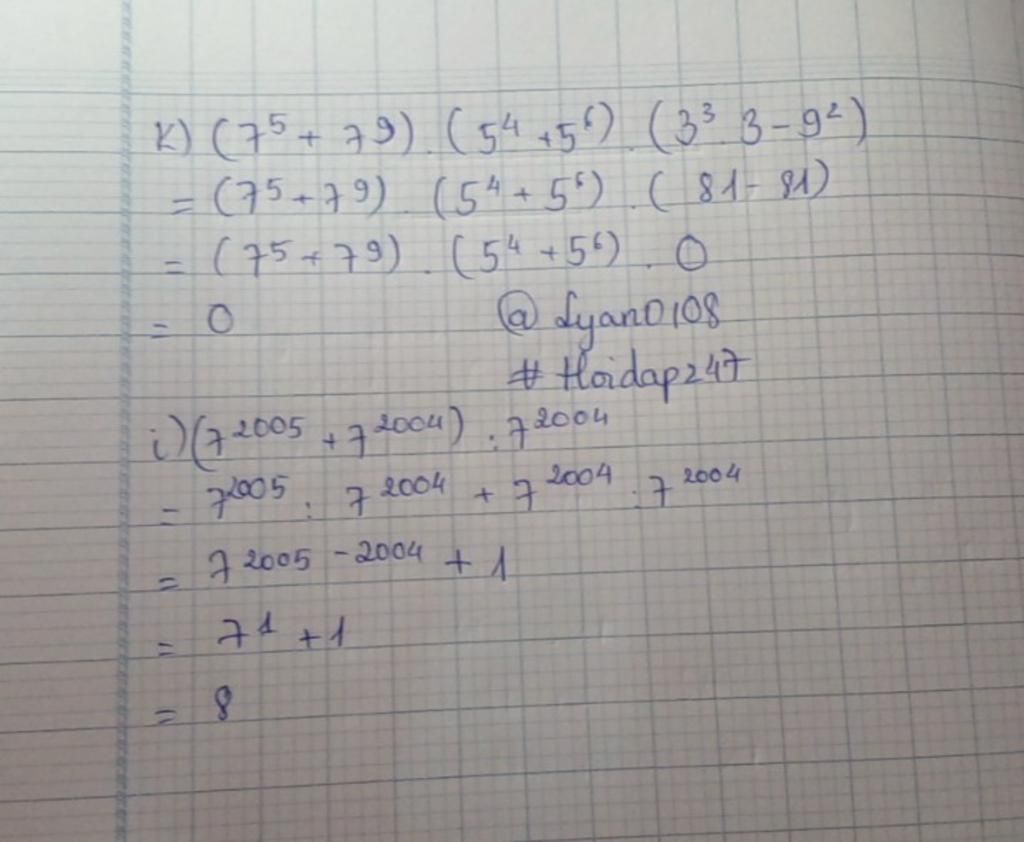 K) (7⁵ + 7⁹) . (5⁴ + 5⁶) . (3³ . 3 - 9²)
= (7⁵ + 7⁹) . (5⁴ + 5⁶) . ( 81 - 81)
= (7⁵ + 7⁹) . (5⁴ + 5⁶) . 0
= 0 @ Lyan0108
# Hoidap247
i) (7²⁰⁰⁵ + 7²⁰⁰⁴) : 7²⁰⁰⁴
= 7²⁰⁰⁵ : 7²⁰⁰⁴ + 7²⁰⁰⁴ : 7²⁰⁰⁴
= 7²⁰⁰⁵⁻²⁰⁰⁴ + 1
= 7¹ + 1
= 8